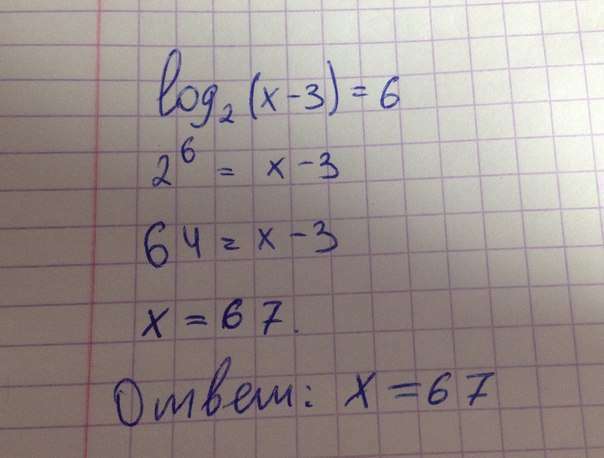 log₂(x-3)=6
2⁶ = x-3
64=x-3
x=67.
Ответ: x=67